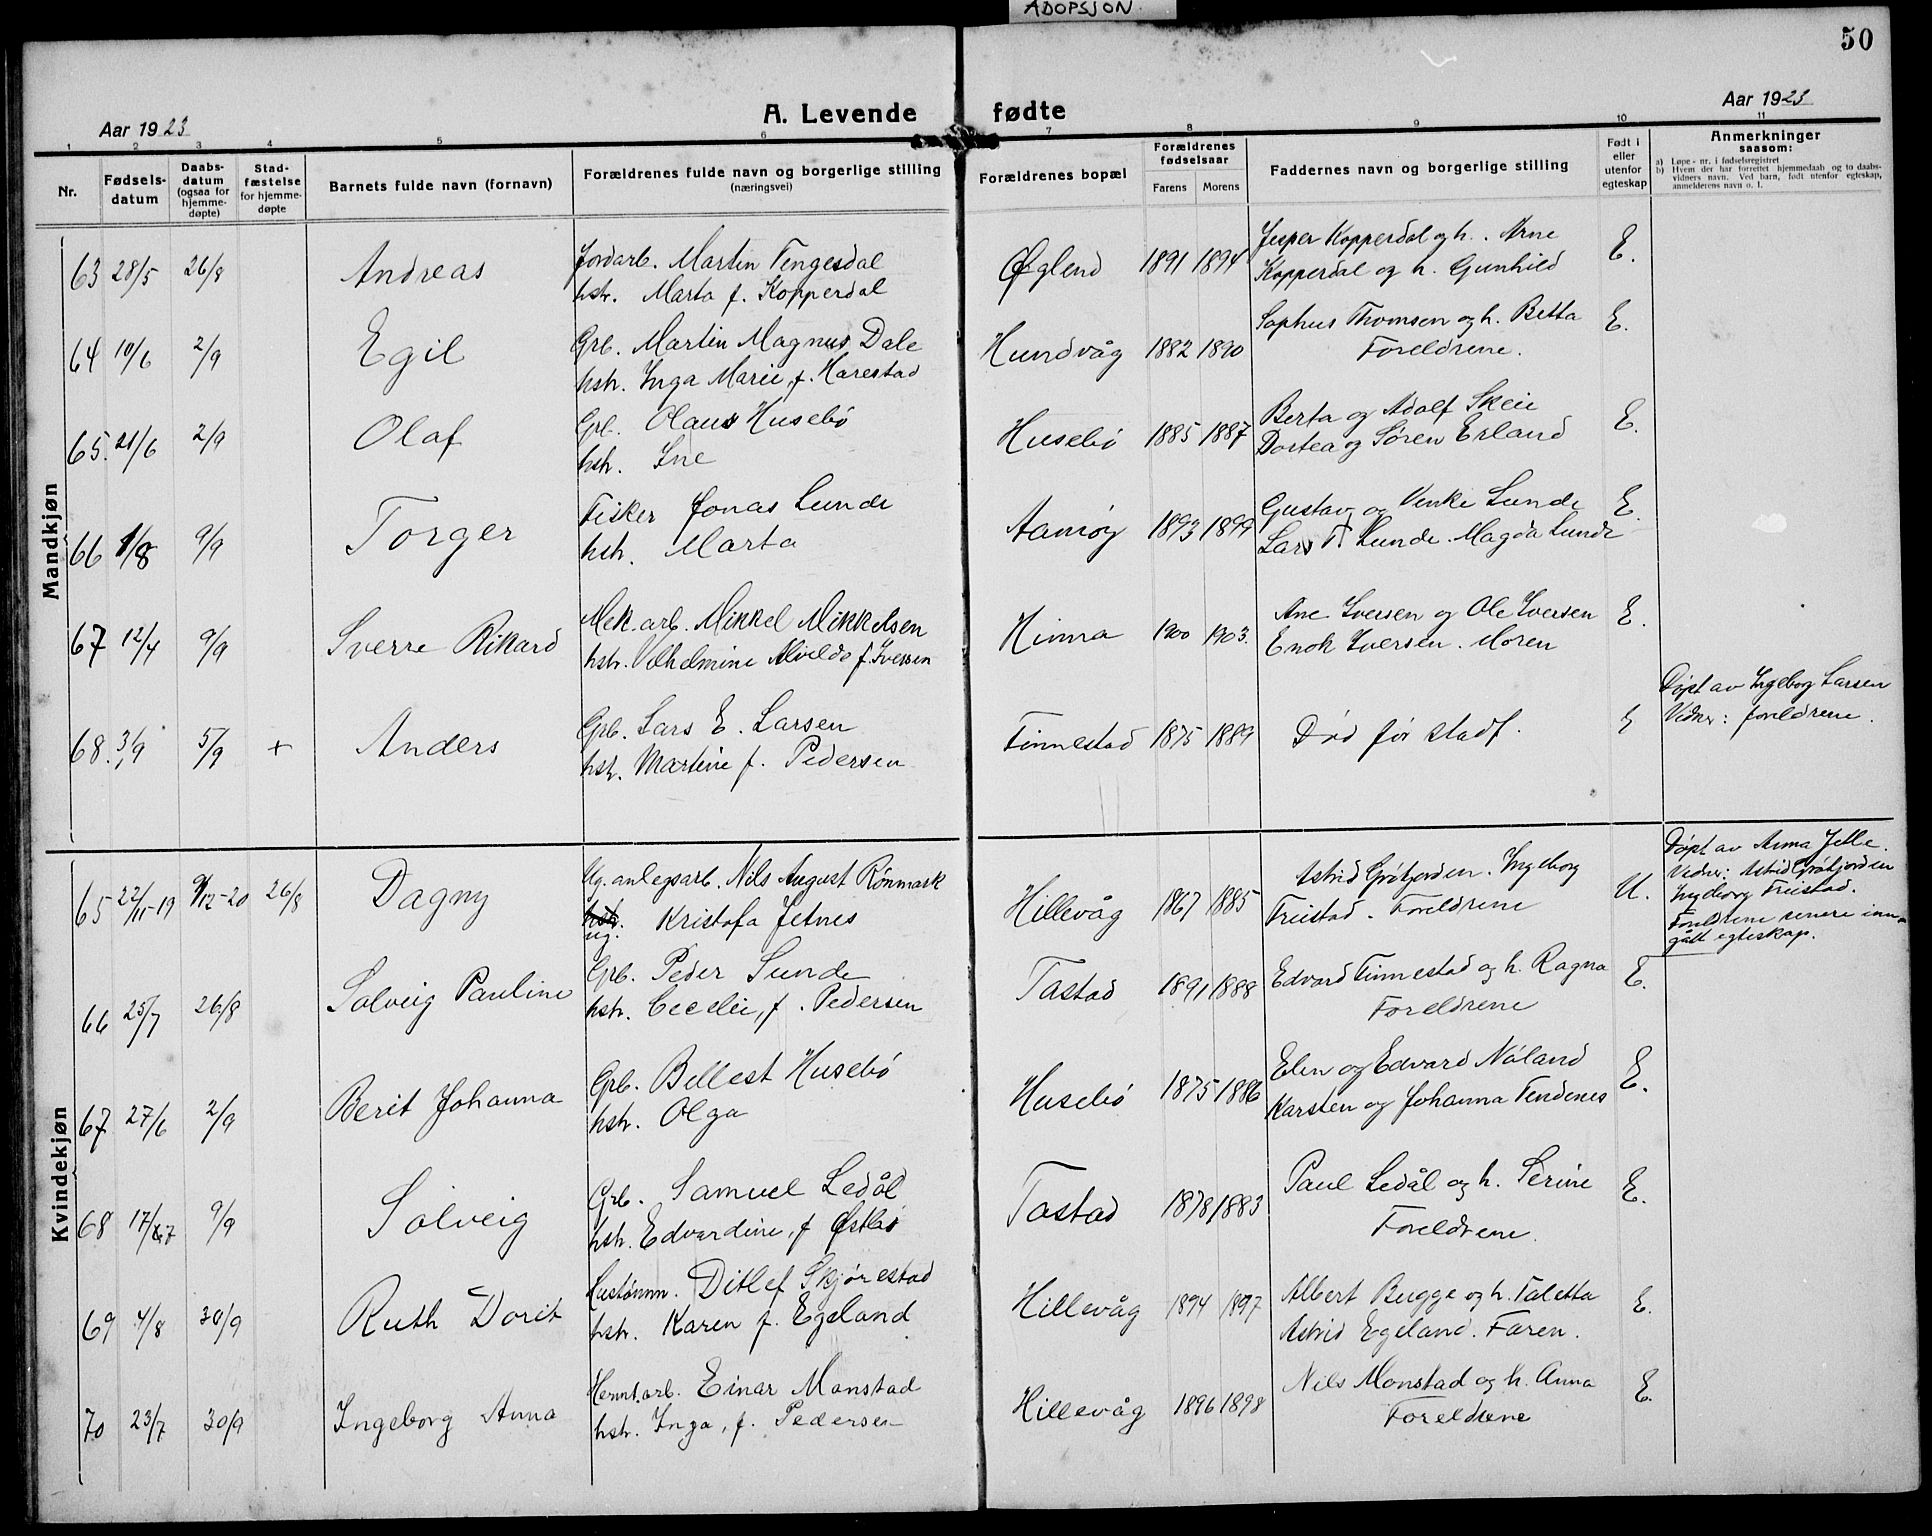 ADOPSJON
50
A. Levende fødte
Aar 1923
Aar 1923
1 2 3 4 5 6 7 8 9 10 11
Nr.
Fødsels-
datum
Daabs-
datum
(ogsaa for
hjemme-
døpte)
Stad-
fæstelse
for hjemme-
døpte
Barnets fulde navn (fornavn)
Forældrenes fulde navn og borgerlige stilling
(næringsvei)
Forældrenes bopæl
Forældrenes
fødselsaar
Farens Morens
Faddernes navn og borgerlige stilling
Født i
eller
utenfor
egteskap
Anmerkninger
saasom:
a) Løpe-nr. i fødselsregistret
b) Hvem der har forrettet hjemmedaab og to daabs-
vidners navn. Ved barn, født utenfor egteskap,
anmelderens navn o. l.
Mandkjøn
63 28/5 26/8 Andreas
Jordarb. Martin Tengesdal
hstr. Marta f. Kopperdal
Øglend 1891 1894
Jesper Kopperdal og h. Arne
Kopperdal og h. Gunhild
E.
64 10/6 2/9 Egil
Grb. Martin Magnus Dale
hstr. Inga Marie, f. Harestad
Hundvåg 1882 1890
Sophus Thomsen og h. Betta
Foreldrene.
E.
65. 21/6 2/9 Olaf
Grb. Olaus Husebø
hstr. Ine
Husebø 1885 1887
Berta og Adolf Skeie
Dortea og Søren Erland
E.
66 1/8 9/9 Torger
Fisker Jonas Lunde
hstr. Marta
Aamøy 1893 1899
Gustav og Venke Lunde
Lars T. Lunde. Magda Lunde
E.
67 12/4 9/9 Sverre Rikard
Mek. arb. Mikkel Mikkelsen
hstr. Vilhelmine Alvilde f. Iversen
Hinna 1900 1903.
Ane Iversen og Ole Iversen
Enok Iversen. Moren
E.
68. 3/9 5/9 + Anders
Grb. Lars E. Larsen
hstr. Martine f. Pedersen
Finnestad 1875 1889
Død før stadf.
E
Døpt av Ingeborg Larsen
Vidner: foreldrene.
Kvindekjøn
65 22/11-19 9/12-20 26/8 Dagny
Ug. anlegsarb. Nils August Rönmark
hstr.
ug. Kristofa Jetnes
Hillevåg 1867 1885
Astrid Grötjorden. Ingeborg
Treistad. Foreldrene
U.
Døpt av Anna Jelle.
Vidner: Astrid Grötjorden
Ingeborg Treistad.
Foreldrene senere inn-
gått egteskap.
66 25/7 26/8 Solveig Pauline
Grb. Peder Sunde
hstr. Cecelie, f. Pedersen
Tastad 1891 1888
Edvard Finnestad og h. Ragna
Foreldrene
E.
67 27/6 2/9 Berit Johanna
Grb. Bellest Husebø
hstr. Olga
Husebø 1875 1886
Elen og Edvard Nåland
Karsten og Johanna Tendenes
E.
68 17/7 9/9 Solveig
Grb. Samuel Ledål
hstr. Edvardine, f Østbø
Tastad 1878 1883
Paul Ledål og h. Serine
Foreldrene.
E.
69 4/8 30/9 Ruth Dorit
Hustømm. Ditlef Skjørestad
hstr. Karen f. Egeland
Hillevåg 1894 1897
Albert Bugge og h. Taletta
Astrid Egeland. Faren.
E.
70 23/7 30/9 Ingeborg Anna
Hermt.arb. Einar Monstad
hstr. Inga, f. Pedersen
Hillevåg 1896 1898
Nils Monstad og h. Anna
Foreldrene
E.